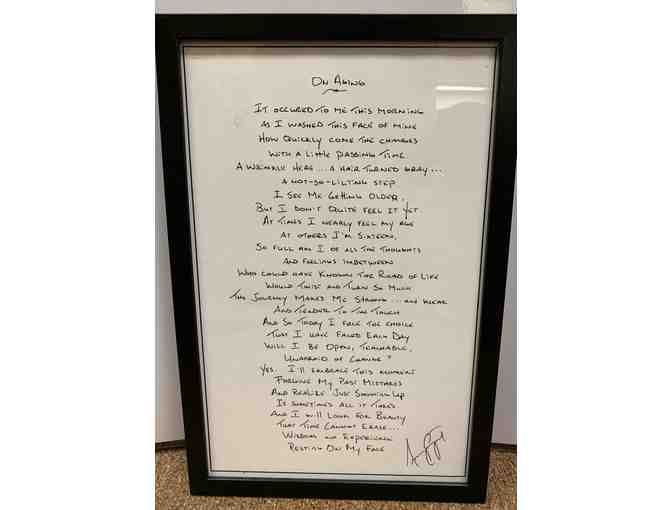 On Aging
It occured to me this morning
As I washed this face of mine
How quickly come the changes
With a little passing time
A wrinkle here ... A hair turned gray ...
A not-so-lilting step
I see me getting older,
But I don't quite feel it yet.
At times I nearly feel my age
At others I'm sixteen,
So full am I of all the thoughts
And feelings inbetween
Who could have known the road of life
Would twist and turn so much
The journey makes me strong ... and weak
And tender to the touch
And so today I face the choice
That I have faced each day
Will I be open, trainable,
Unafraid of change?
Yes. I'll embrace this moment
Forgive my past mistakes
And realize just showing up
Is sometimes all it takes
And I will look for beauty
That time cannot erase ...
Wisdom and experience
Resting on my face